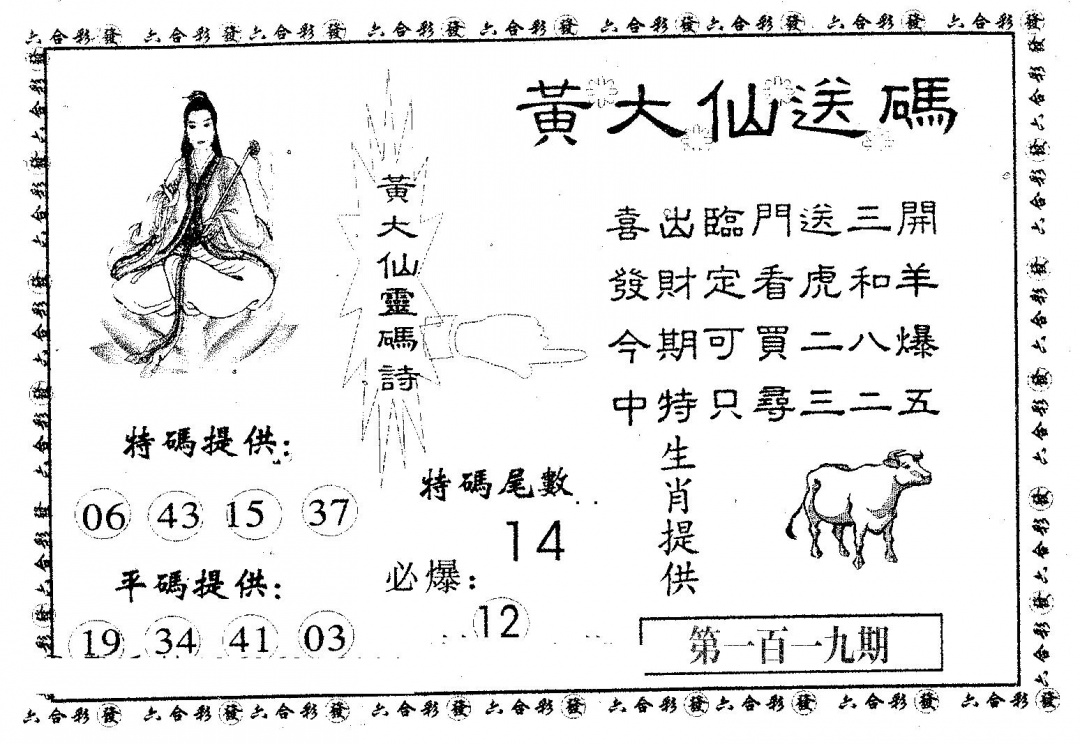 六合彩發 六合彩發 六合彩發 六合彩發 六合彩發 六合彩發 六合彩發 六合彩發 六合彩發
黃大仙送碼
黃大仙靈碼詩
喜出臨門送三開
發財定看虎和羊
今期可買二八爆
中特只尋三二五
特碼提供:
06 43 15 37
平碼提供:
19 34 41 03
特碼尾數
14
必爆:
12
生肖提供
第一百一九期
六合彩發 六合彩發 六合彩發 六合彩發 六合彩發 六合彩發 六合彩發 六合彩發 六合彩發